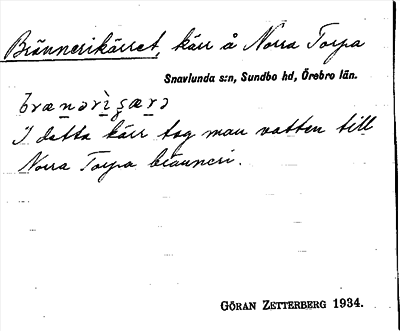 Brännerikärret, kärr å Norra Torpa
Snavlunda s:n, Sundbo hd, Örebro län.
I detta kärr tog man vatten till
Norra Torpa bränneri.
GÖRAN ZETTERBERG 1934.